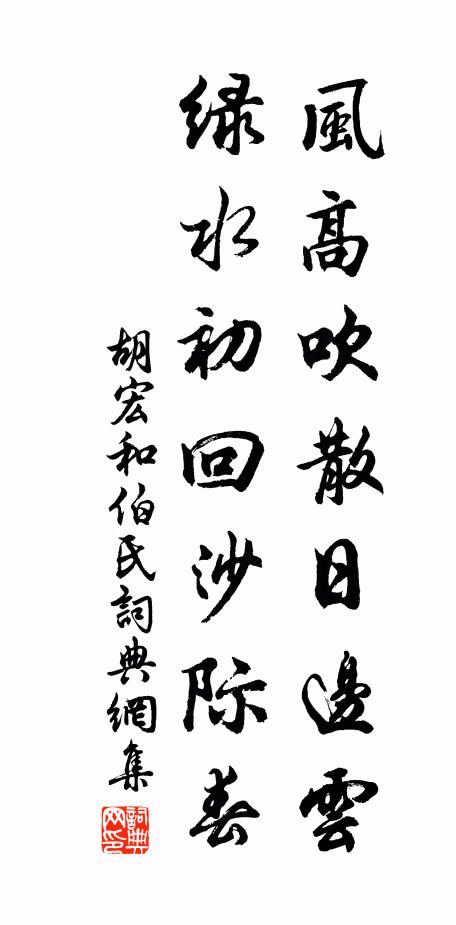 風高吹散日邊雲
緑水初回沙际春
胡宏和伯氏詞典網集
詞典网印